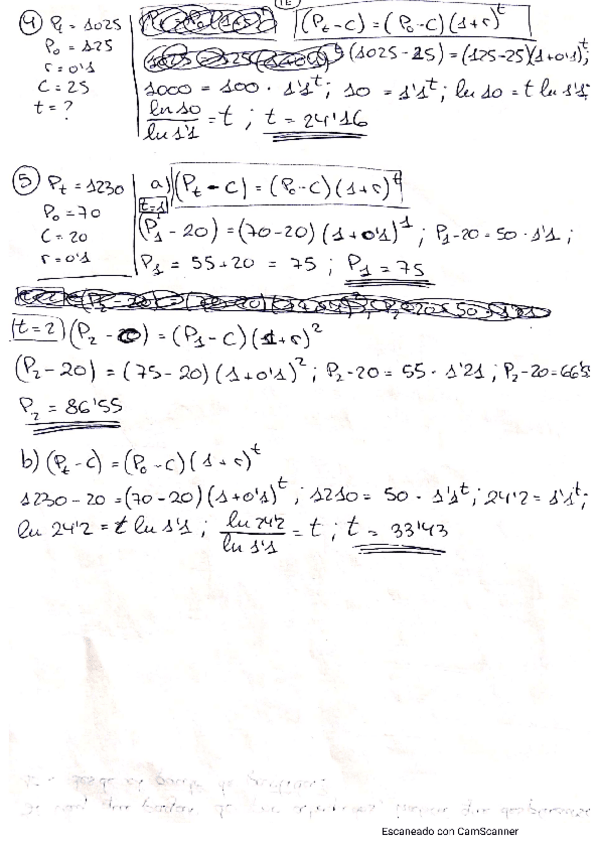 ④ Pt = 1025
P0 = 125
r = 0'1
C = 25
t = ?
(Pt - C) = (P0 - C) (1 + r)^t
(1025 - 25) = (125 - 25) (1 + 0'1)^t;
1000 = 100 · 1'1^t; 10 = 1'1^t; ln 10 = t ln 1'1;
ln 10 / ln 1'1 = t ; t = 24'16
⑤ Pt = 1230
P0 = 70
C = 20
r = 0'1
a) (Pt - C) = (P0 - C) (1 + r)^t
t = 1
(P1 - 20) = (70 - 20) (1 + 0'1)^1 ; P1 - 20 = 50 · 1'1 ;
P1 = 55 + 20 = 75 ; P1 = 75
(t = 2) (P2 - C) = (P1 - C) (1 + r)^2
(P2 - 20) = (75 - 20) (1 + 0'1)^2 ; P2 - 20 = 55 · 1'21 ; P2 - 20 = 66'5
P2 = 86'55
b) (Pt - C) = (P0 - C) (1 + r)^t
1230 - 20 = (70 - 20) (1 + 0'1)^t ; 1210 = 50 · 1'1^t ; 24'2 = 1'1^t ;
ln 24'2 = t ln 1'1 ; ln 24'2 / ln 1'1 = t ; t = 33'43
Escaneado con CamScanner